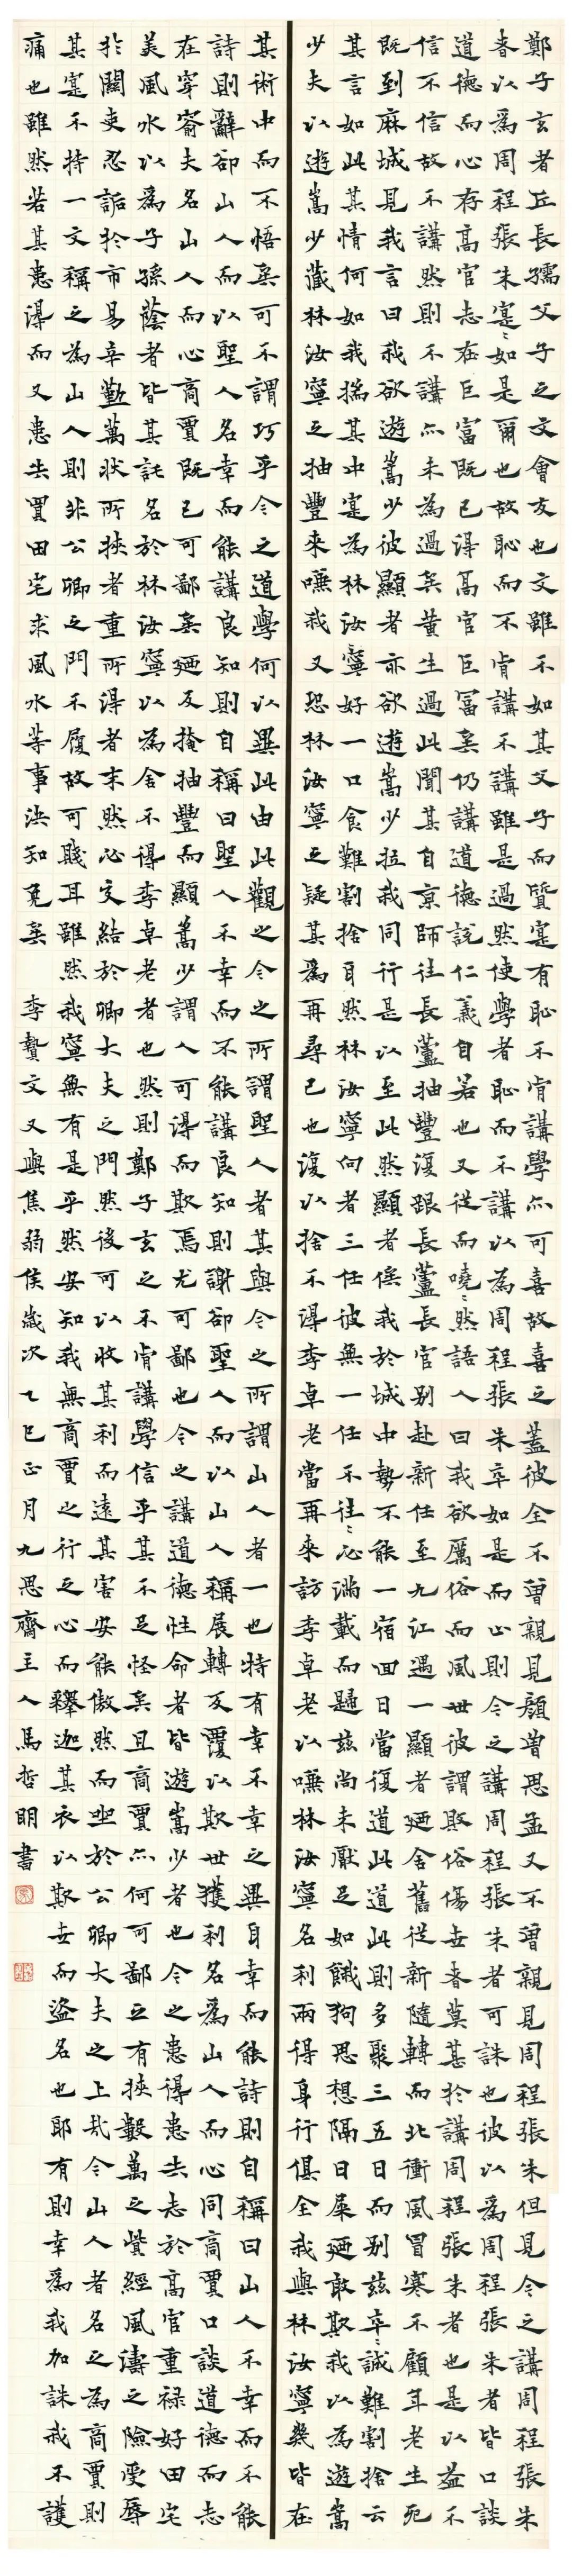 鄭子玄者丘長孺父子之文會友也文雖不如其父子而質實有恥不肯講學亦可喜故喜之蓋彼全不曾親見顏曾思孟又不曾親見周程張朱但見今之講周程張朱
者以為周程張朱實〻如是爾也故恥而不肯講不講雖是過然使學者恥而不講以為周程張朱卒如是而止則今之講周程張朱者可誅也彼以為周程張朱者皆口談
道德而心存高官志在巨富既已得高官巨富矣仍講道德說仁義自若也又從而嘵〻然語人曰我欲厲俗而風世彼謂敗俗傷世者莫甚於講周程張朱者也是以益不
信不信故不講然則不講亦未為過矣黃生過此聞其自京師往長蘆抽豐復跟長蘆長官別赴新任至九江遇一顯者廼舍舊從新隨轉而北衝風冒寒不顧年老生死
既到麻城見我言曰我欲遊嵩少彼顯者亦欲遊嵩少拉我同行是以至此然顯者俟我於城中勢不能一宿回日當復道此道此則多聚三五日而別茲卒〻誠難割捨云
其言如此其情何如我揣其中實為林汝寧好一口食難割捨耳然林汝寧向者三任彼無一任不往〻必滿載而歸茲尚未厭足如餓狗思想隔日屎廼敢欺我以為遊嵩
少夫以遊嵩少藏林汝寧之抽豐來嚥我又恐林汝寧之疑其為再尋己也復以捨不得李卓老當再來訪李卓老以嚥林汝寧名利兩得身行俱全我與林汝寧幾皆在
其術中而不悟矣可不謂巧乎今之道學何以異此由此觀之今之所謂聖人者其與今之所謂山人者一也特有幸不幸之異耳幸而能詩則自稱曰山人不幸而不能
詩則辭卻山人而以聖人名幸而能講良知則自稱曰聖人不幸而不能講良知則謝卻聖人而以山人稱展轉反覆以欺世獲利名為山人而心同商賈口談道德而志
在穿窬夫名山人而心商賈既已可鄙矣廼反掩抽豐而顯嵩少謂人可得而欺焉尤可鄙也今之講道德性命者皆遊嵩少者也今之患得患失志於高官重祿好田宅
美風水以為子孫蔭者皆其託名於林汝寧以為舍不得李卓老者也然則鄭子玄之不肯講學信乎其不足怪矣且商賈亦何可鄙之有挾數萬之貲經風濤之險受辱
於關吏忍詬於市易辛勤萬狀所挾者重所得者末然必交結於卿大夫之門然後可以收其利而遠其害安能傲然而坐於公卿大夫之上哉今山人者名之為商賈則
其實不持一文稱之為山人則非公卿之門不履故可賤耳雖然我寧無有是乎然安知我無商賈之行之心而釋迦其衣以欺世而盜名也耶有則幸為我加誅我不護
痛也雖然若其患得而又患失買田宅求風水等事決知免矣 李贄文又與焦弱侯歲次乙巳正月九思齋主人馬哲明書